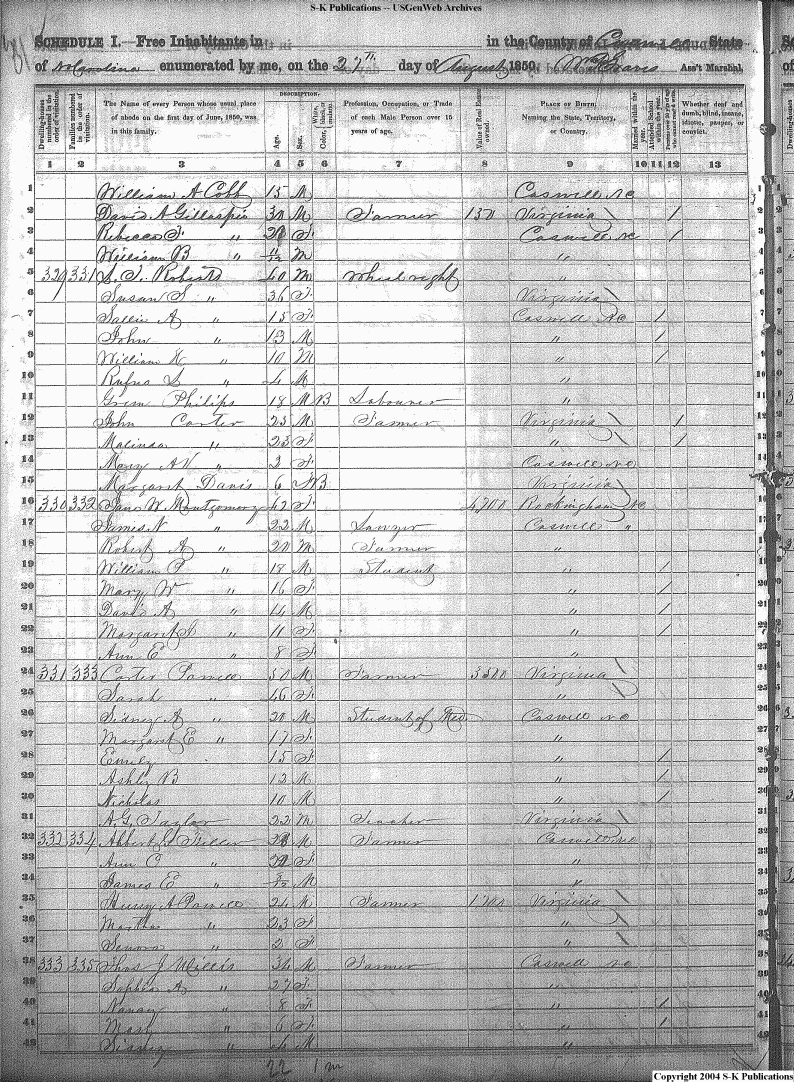 S-K Publications -- USGenWeb Archives
SCHEDULE I.—Free Inhabitants in in the County of State
of N Carolina enumerated by me, on the 27th day of August 1850. Ass't Marshal.
Dwelling-houses numbered in the order of visitation.
Families numbered in the order of visitation.
The Name of every Person whose usual place of abode on the first day of June, 1850, was in this family.
DESCRIPTION.
Age.
Sex.
Color, White, black, or mulatto.
Profession, Occupation, or Trade of each Male Person over 15 years of age.
Value of Real Estate owned.
PLACE OF BIRTH. Naming the State, Territory, or Country.
Married within the year.
Attended School within the year.
Persons over 20 y'rs of age who cannot read & write.
Whether deaf and dumb, blind, insane, idiotic, pauper, or convict.
1 2 3 4 5 6 7 8 9 10 11 12 13
1 William A Cobb 15 M Caswell NC 1
2 David A Gillaspie 30 M Farmer Virginia / 2
3 Rebecca " F Caswell NC / 3
4 William B " M " 4
5 329 331 Roberts 40 M Wheelright " 5
6 Susan S " 36 F Virginia 6
7 Sallie A " 15 F Caswell NC / 7
8 John " 13 M " / 8
9 William " 10 M " / 9
10 Rufus S " 4 M " 10
11 Green Philips 18 M B Labourer " 11
12 John Carter 25 M Farmer Virginia / 12
13 Malinda " 23 F " / 13
14 Mary " 2 F Caswell NC 14
15 Margaret Davis 6 F B Virginia 15
16 330 332 Jane W Montgomery 42 F 4,700 Rockingham NC 16
17 James N " 22 M Lawyer Caswell " 17
18 Robert A " 20 M Farmer " 18
19 William P " 18 M Student " / 19
20 Mary W " 16 F " / 20
21 David A " 14 M " / 21
22 Margaret " 11 F " / 22
23 Ann E " 8 F " 23
24 331 333 Carter Powell 50 M Farmer 3500 Virginia 24
25 Sarah " 46 F " 25
26 Sidney A " 20 M Student of Med. Caswell NC 26
27 Margaret E " 17 F " 27
28 Emily 15 F " / 28
29 Ashley B 12 M " / 29
30 Nicholas 10 M " / 30
31 A G Taylor 22 M Teacher Virginia 31
32 332 334 Miller M Farmer Caswell NC 32
33 Ann C " F " 33
34 James E " M " 34
35 Henry A Powell 24 M Farmer Virginia 35
36 Martha " 23 F " 36
37 Senora " 2 F " 37
38 333 335 Thos J Willis 34 M Farmer Caswell NC 38
39 Sophia A " 27 F " 39
40 Nancy " 8 F " / 40
41 Mary " 6 F " / 41
42 Sidney " 4 M " 42
22 1 m
Copyright 2004 S-K Publications